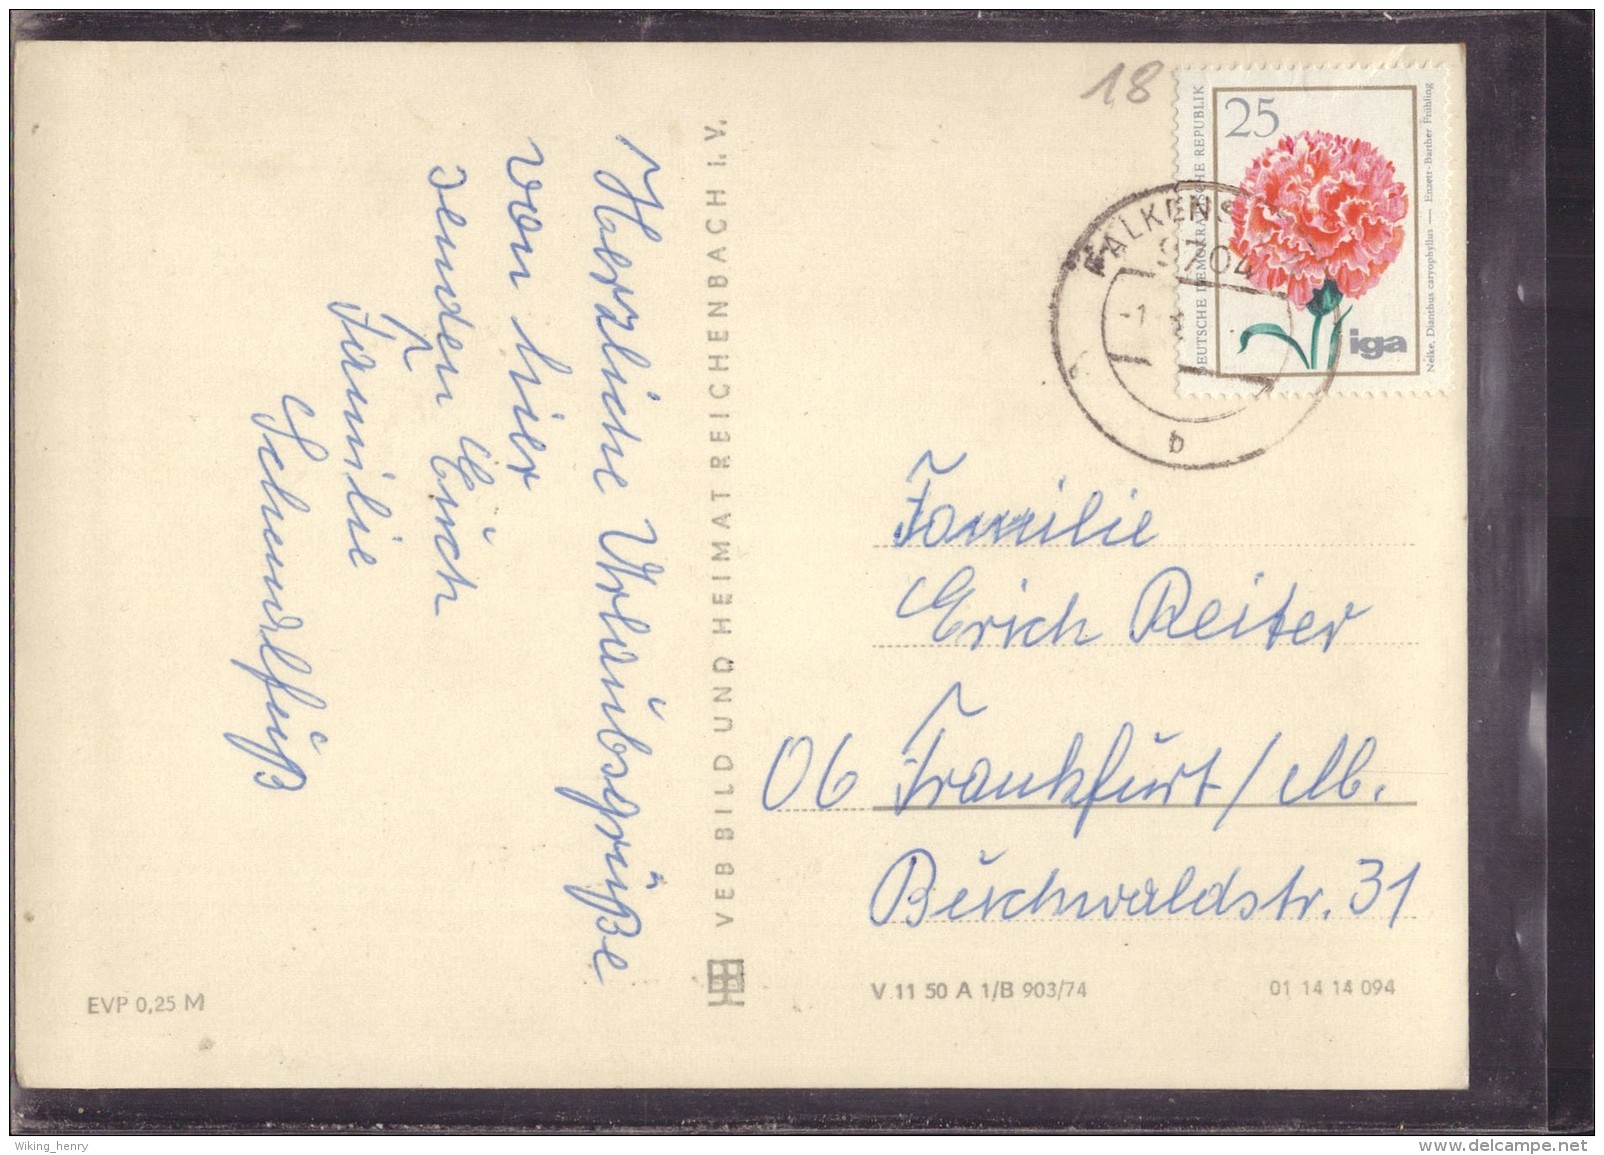 18
25
DEUTSCHE DEMOKRATISCHE REPUBLIK
Nelke, Dianthus caryophyllus — Enzett-Barther Frühling
iga
9704
b
Herzliche Urlaubsgrüße
von hier
senden Euch
Familie
VEB BILD UND HEIMAT REICHENBACH I. V.
Familie
Erich Reiter
06 Frankfurt/M.
Buchwaldstr. 31
EVP 0,25 M
V 11 50 A 1/B 903/74
01 14 14 094
Wiking_henry
www.delcampe.net